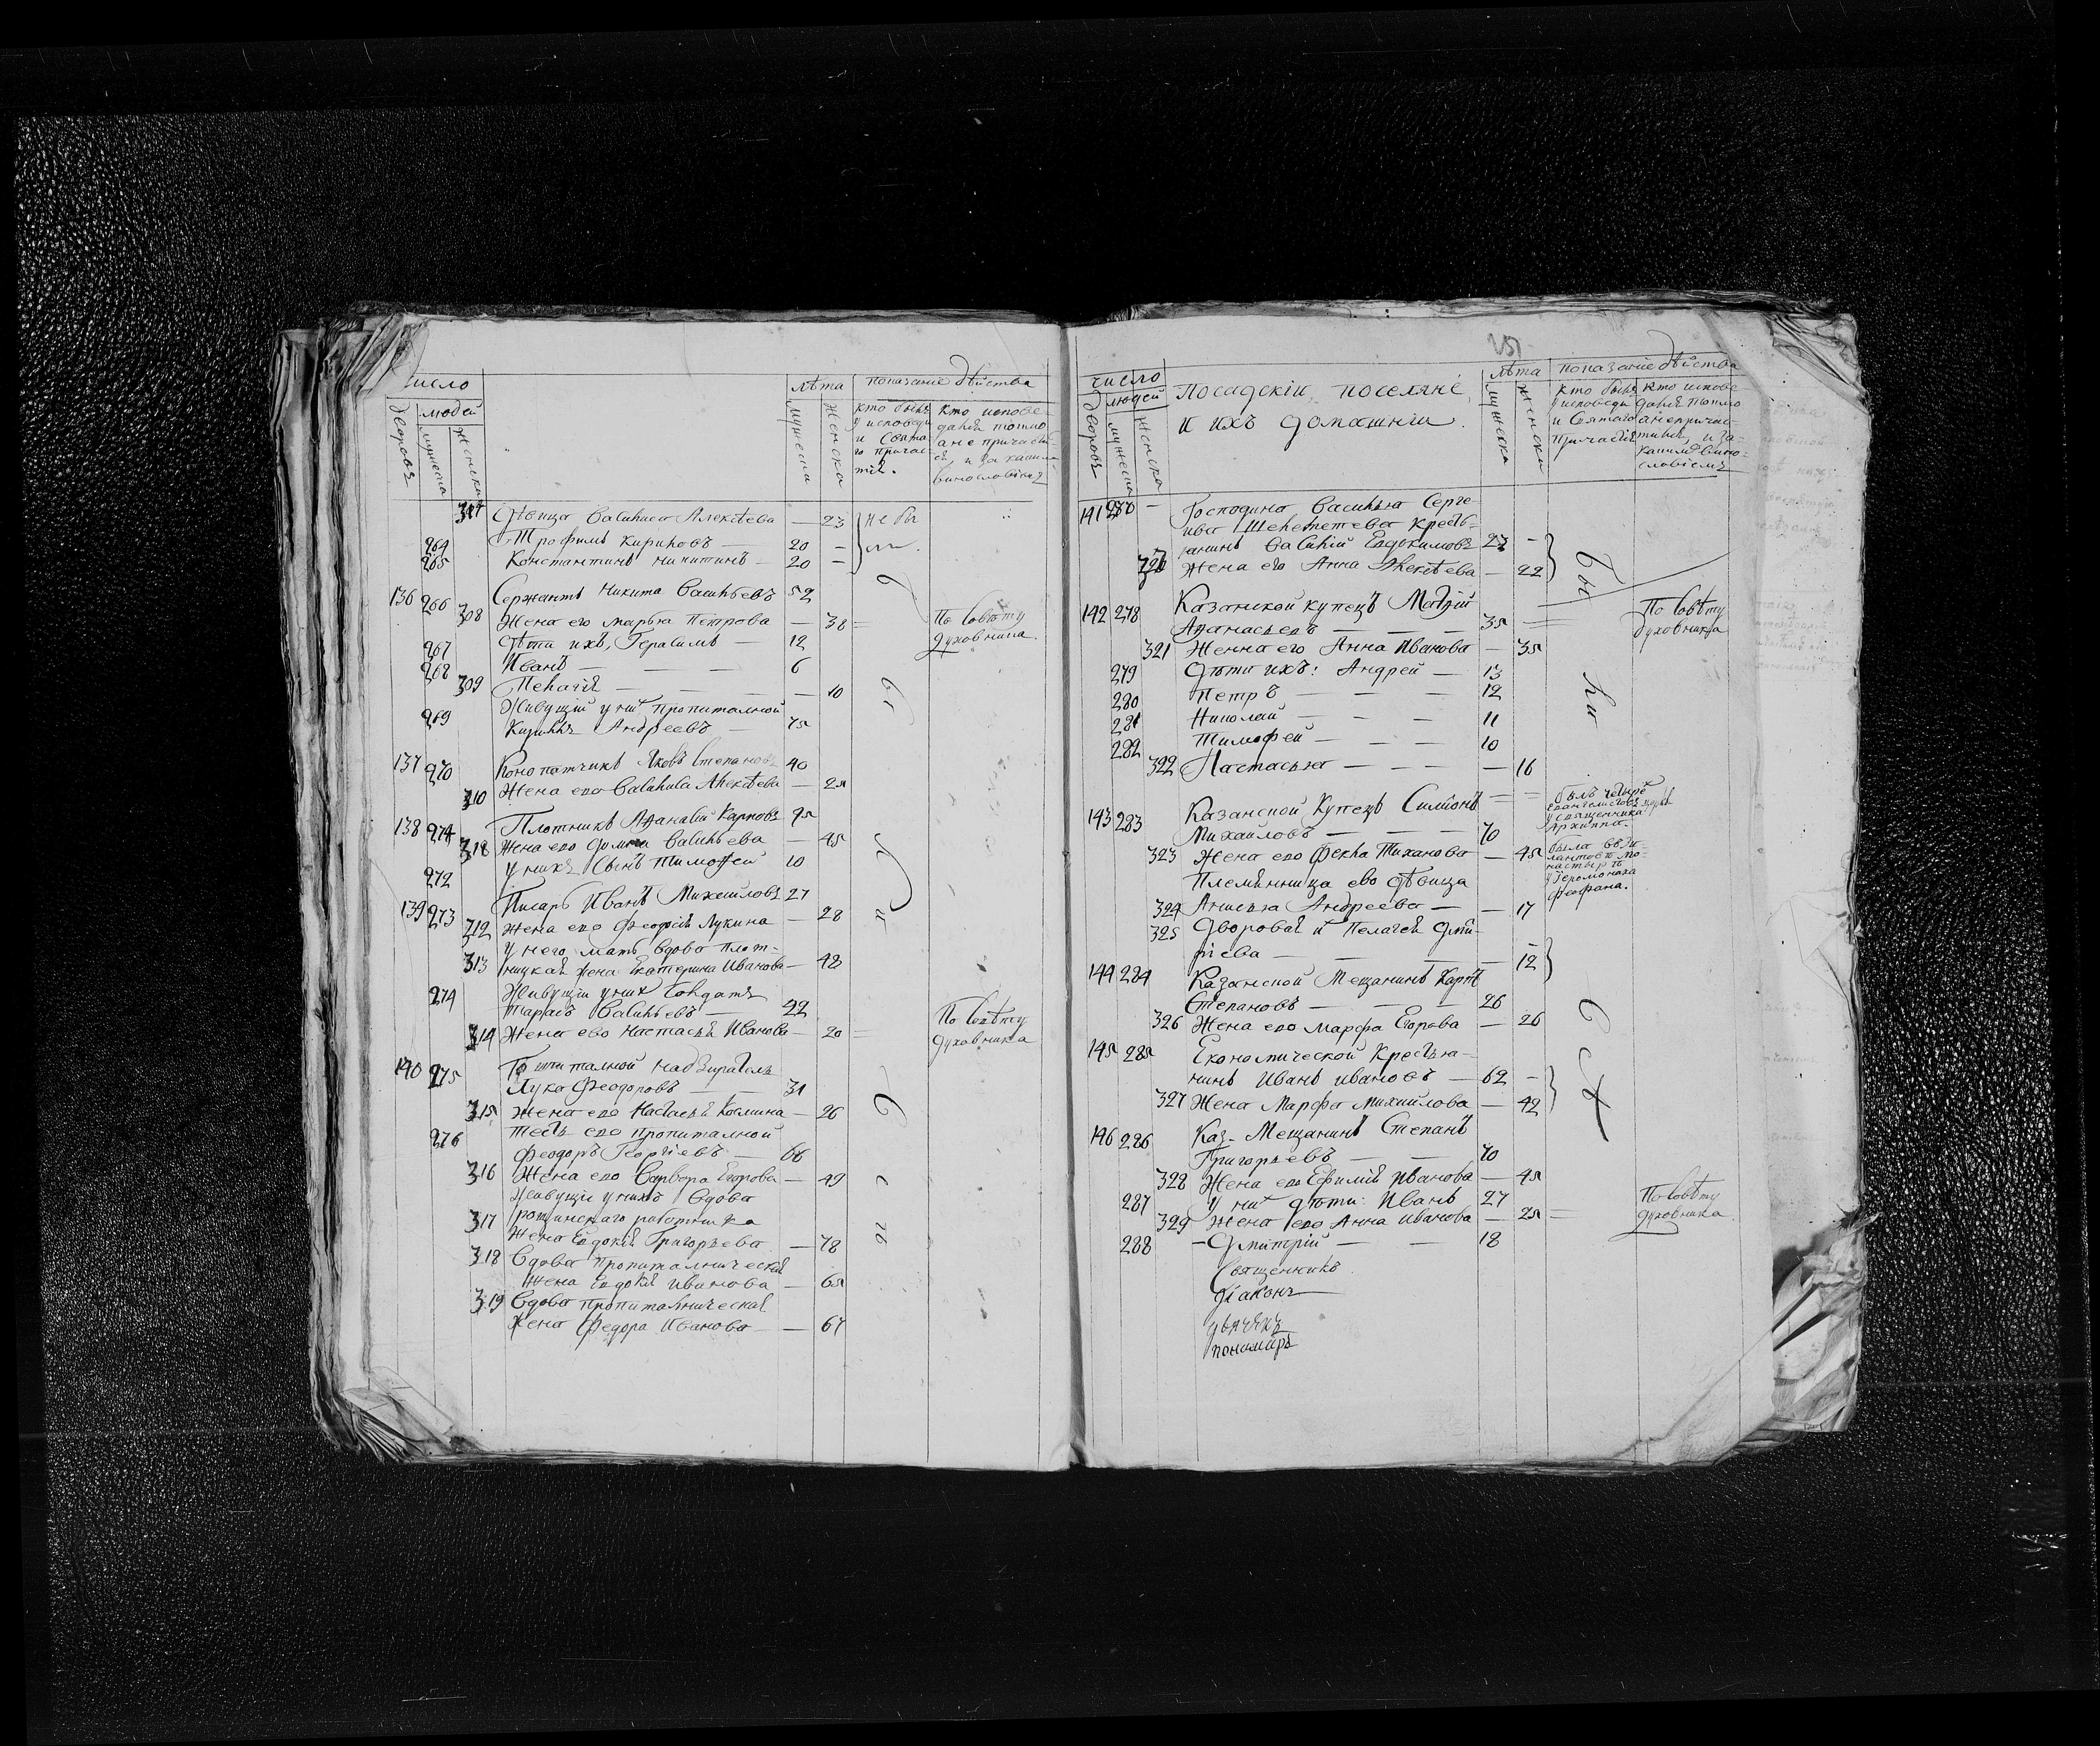 число
людей
дворовъ
мужеска
женска
лѣта
мужеска
женска
показаніе дѣйства
кто былъ у исповеди и Свята-го причас-тія.
кто испове-дался токмо а не причасти-ся, и за какимъ винословіемъ
307 Дѣвица Василиса Алексѣева — 23 не бы
264 Трофимъ Кириловъ — 20 — ли.
265 Константинъ Никитинъ — 20 —
136 266 Сержантъ Никита Васильевъ 52
308 Жена его Марья Петрова — 38 = По совѣту
духовника.
267 Дѣти ихъ, Герасимъ — 12
268 Иванъ — — — 6
309 Пелагія — — — — 10
Живущій у них пропиталной
269 Кирилъ Андреевъ — 75
137 270 Конопатчикъ Яковъ Степановъ 40
310 Жена ево Василиса Алексѣева — 25
138 271 Плотникъ Афанасій Карповъ 45
311 Жена ево Домна Васильева — 45
272 у нихъ Сынъ Тимофей 10
139 273 Писарь Иванъ Михеиловъ 27
312 Жена ево Феодосія Лукина — 28
У него мать вдова плот-
313 ницкая жена Екатерина Иванова — 48
274 Живущіи у них Солдатъ
Тарасъ Васильевъ — 22
314 Жена ево Настасья Иванова — 20 = По совѣту
духовника
140 275 Гошпиталной надзиратель
Лука Феодоровъ — — 31
315 Жена ево Настасья Космина — 26
276 тесть ево пропиталной
Феодоръ Георгіевъ — 66
316 Жена ево Варвара Егорова — 49
Живущіе у нихъ вдова
317 работника
Жена Евдокія Григорьева — 78
318 Вдова пропиталническая
Жена Евдокія Иванова — 65
319 Вдова пропиталническая
Жена Федора Иванова — 67
251
число
людей
дворовъ
мужеска
женска
Посадскіи, поселяне,
и ихъ домашніи.
лѣта
мужеска
женска
показаніе дѣйства
кто былъ у исповеди и Святаго причастія
кто испове-дался токмо а не причас-тился, и за какимъ вино-словіемъ
141 Господина Василья Серге-
ива Шереметева Кресть-
янинъ Василій Евдокимовъ 27 —
320 Жена его Анна Алексѣева — 22
142 278 Казанской купецъ Матфій
Афанасьевъ — — — 35 = По совѣту
духовника
321 Женна его Анна Иванова — 35
279 Дѣти ихъ: Андрей — 13
280 Петръ — — — 12
281 Николай — — — 11
282 Тимофей — — — 10
322 Настасья — — — — 16
143 283 Казанской Купецъ Симіонъ = = былъ четырехъ
евангелистовъ церкв
у священника
Архиппа.
Михаиловъ — — — 70
323 Жена ево Фекла Тиханова — 45 была въ Зи-
лантовѣ мо-
настырѣ
у Іеромонаха
Феофана.
Племянница ево дѣвица
324 Анисья Андреева — — 17
325 Дворовая их Пелагея Дми-
ріева — — — 12
144 284 Казанской Мещанинъ Карпъ
Степановъ — — — 26
326 Жена ево Марфа Егорова — 26
145 285 Економической Крестья-
нинъ Иванъ Ивановъ — 62 —
327 Жена Марфа Михаилова — 42
146 286 Каз. Мещанинъ Степанъ
Григорьевъ — — 70
328 Жена ево Ефимія Иванова — 45
287 У них дѣти: Иванъ 27
329 Жена ево Анна Иванова — 25 = По совѣту
духовника
288 — Дмитрій — — 18
Священникъ
Діаконъ
дьячекъ
пономарь